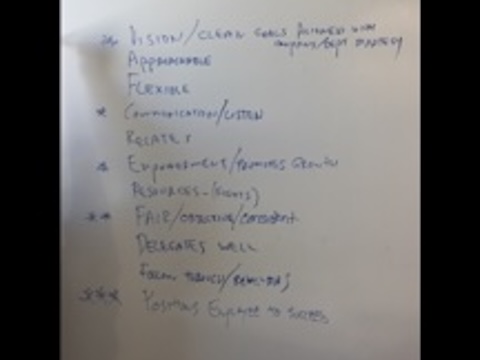 VISION/CLEAR GOALS ALIGNED WITH
COMPANY/DEPT STRATEGY
APPROACHABLE
FLEXIBLE
* COMMUNICATION/LISTEN
RELATES
* EMPOWERMENT/PROMOTES GROWTH
RESOURCES-
** FAIR/OBJECTIVE/CONSISTENT
DELEGATES WELL
FOLLOW THROUGH/
*** POSITIONS EMPLOYEE TO SUCCEED